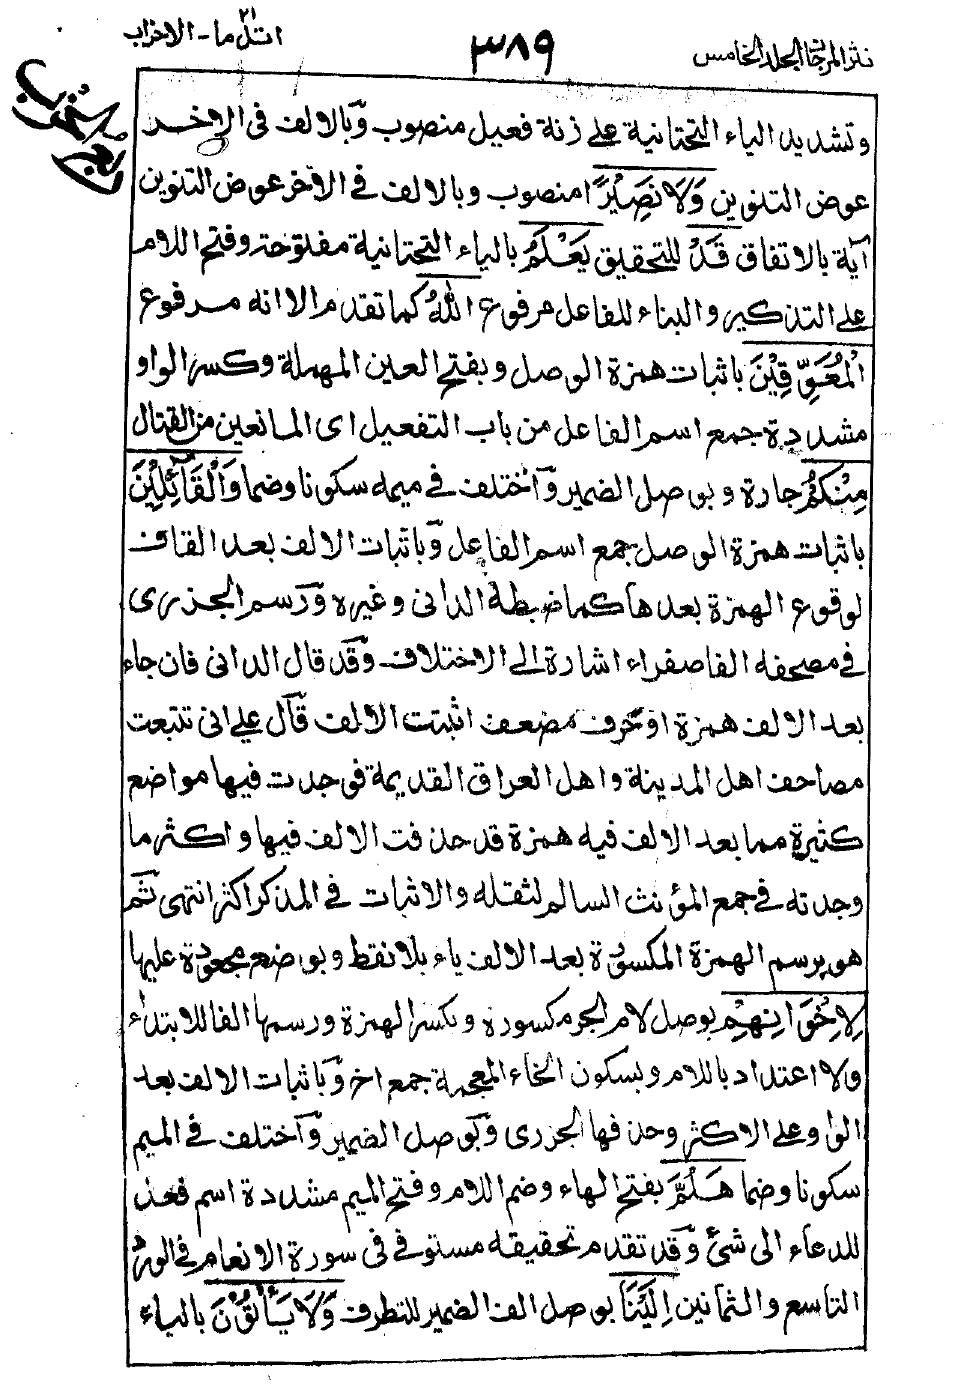 نثر المرجان المجلد الخامس ٣٨٩ اتل ما ٢١ - الاحزاب
نصف الحزب
وتشديد الياء التحتانية على زنة فعيل منصوب وبالالف فى الاخر
عوض التنوين وَلَا نَصِيْرًا منصوب وبالالف فى الاخر عوض التنوين
آية بالاتفاق قَدْ للتحقيق يَعْلَمُ بالياء التحتانية مفتوحة وفتح اللام
على التذكير والبناء للفاعل مرفوع اللّٰهُ كما تقدم الا انه مرفوع
الْمُعَوِّقِيْنَ باثبات همزة الوصل وبفتح العين المهملة وكسر الواو
مشددة جمع اسم الفاعل من باب التفعيل اى المانعين من القتال
مِنْكُمْ جارة وبوصل الضمير واختلف فى ميمه سكونا وضما وَالْقَآئِلِيْنَ
باثبات همزة الوصل جمع اسم الفاعل وباثبات الالف بعد القاف
لوقوع الهمزة بعدها كما ضبطه الدانى وغيره ورسم الجزرى
فى مصحفه الفا صفراء اشارة الى الاختلاف وقد قال الدانى فان جاء
بعد الالف همزة او حرف مضعف اثبتت الالف قال على انى تتبعت
مصاحف اهل المدينة واهل العراق القديمة فوجدت فيها مواضع
كثيرة مما بعد الالف فيه همزة قد حذفت الالف فيها واكثر ما
وجدته فى جمع المؤنث السالم لثقله والاثبات فى المذكر اكثر انتهى ثم
هو يرسم الهمزة المكسورة بعد الالف ياء بلا نقط وبوضع مجعودة عليها
لِاِخْوَانِهِمْ بوصل لام الجر مكسورة وبكسر الهمزة ورسمها الفا للابتداء
ولا اعتداد باللام وبسكون الخاء المعجمة جمع اخ وباثبات الالف بعد
الواو على الاكثر وحذفها الجزرى وبوصل الضمير واختلف فى الميم
سكونا وضما هَلُمَّ بفتح الهاء وضم اللام وفتح الميم مشددة اسم فعل
للدعاء الى شئ وقد تقدم تحقيقه مستوفى فى سورة الانعام فى الورد
التاسع والثمانين اِلَيْنَا بوصل الف الضمير للتطرف وَلَا يَأْتُوْنَ بالياء